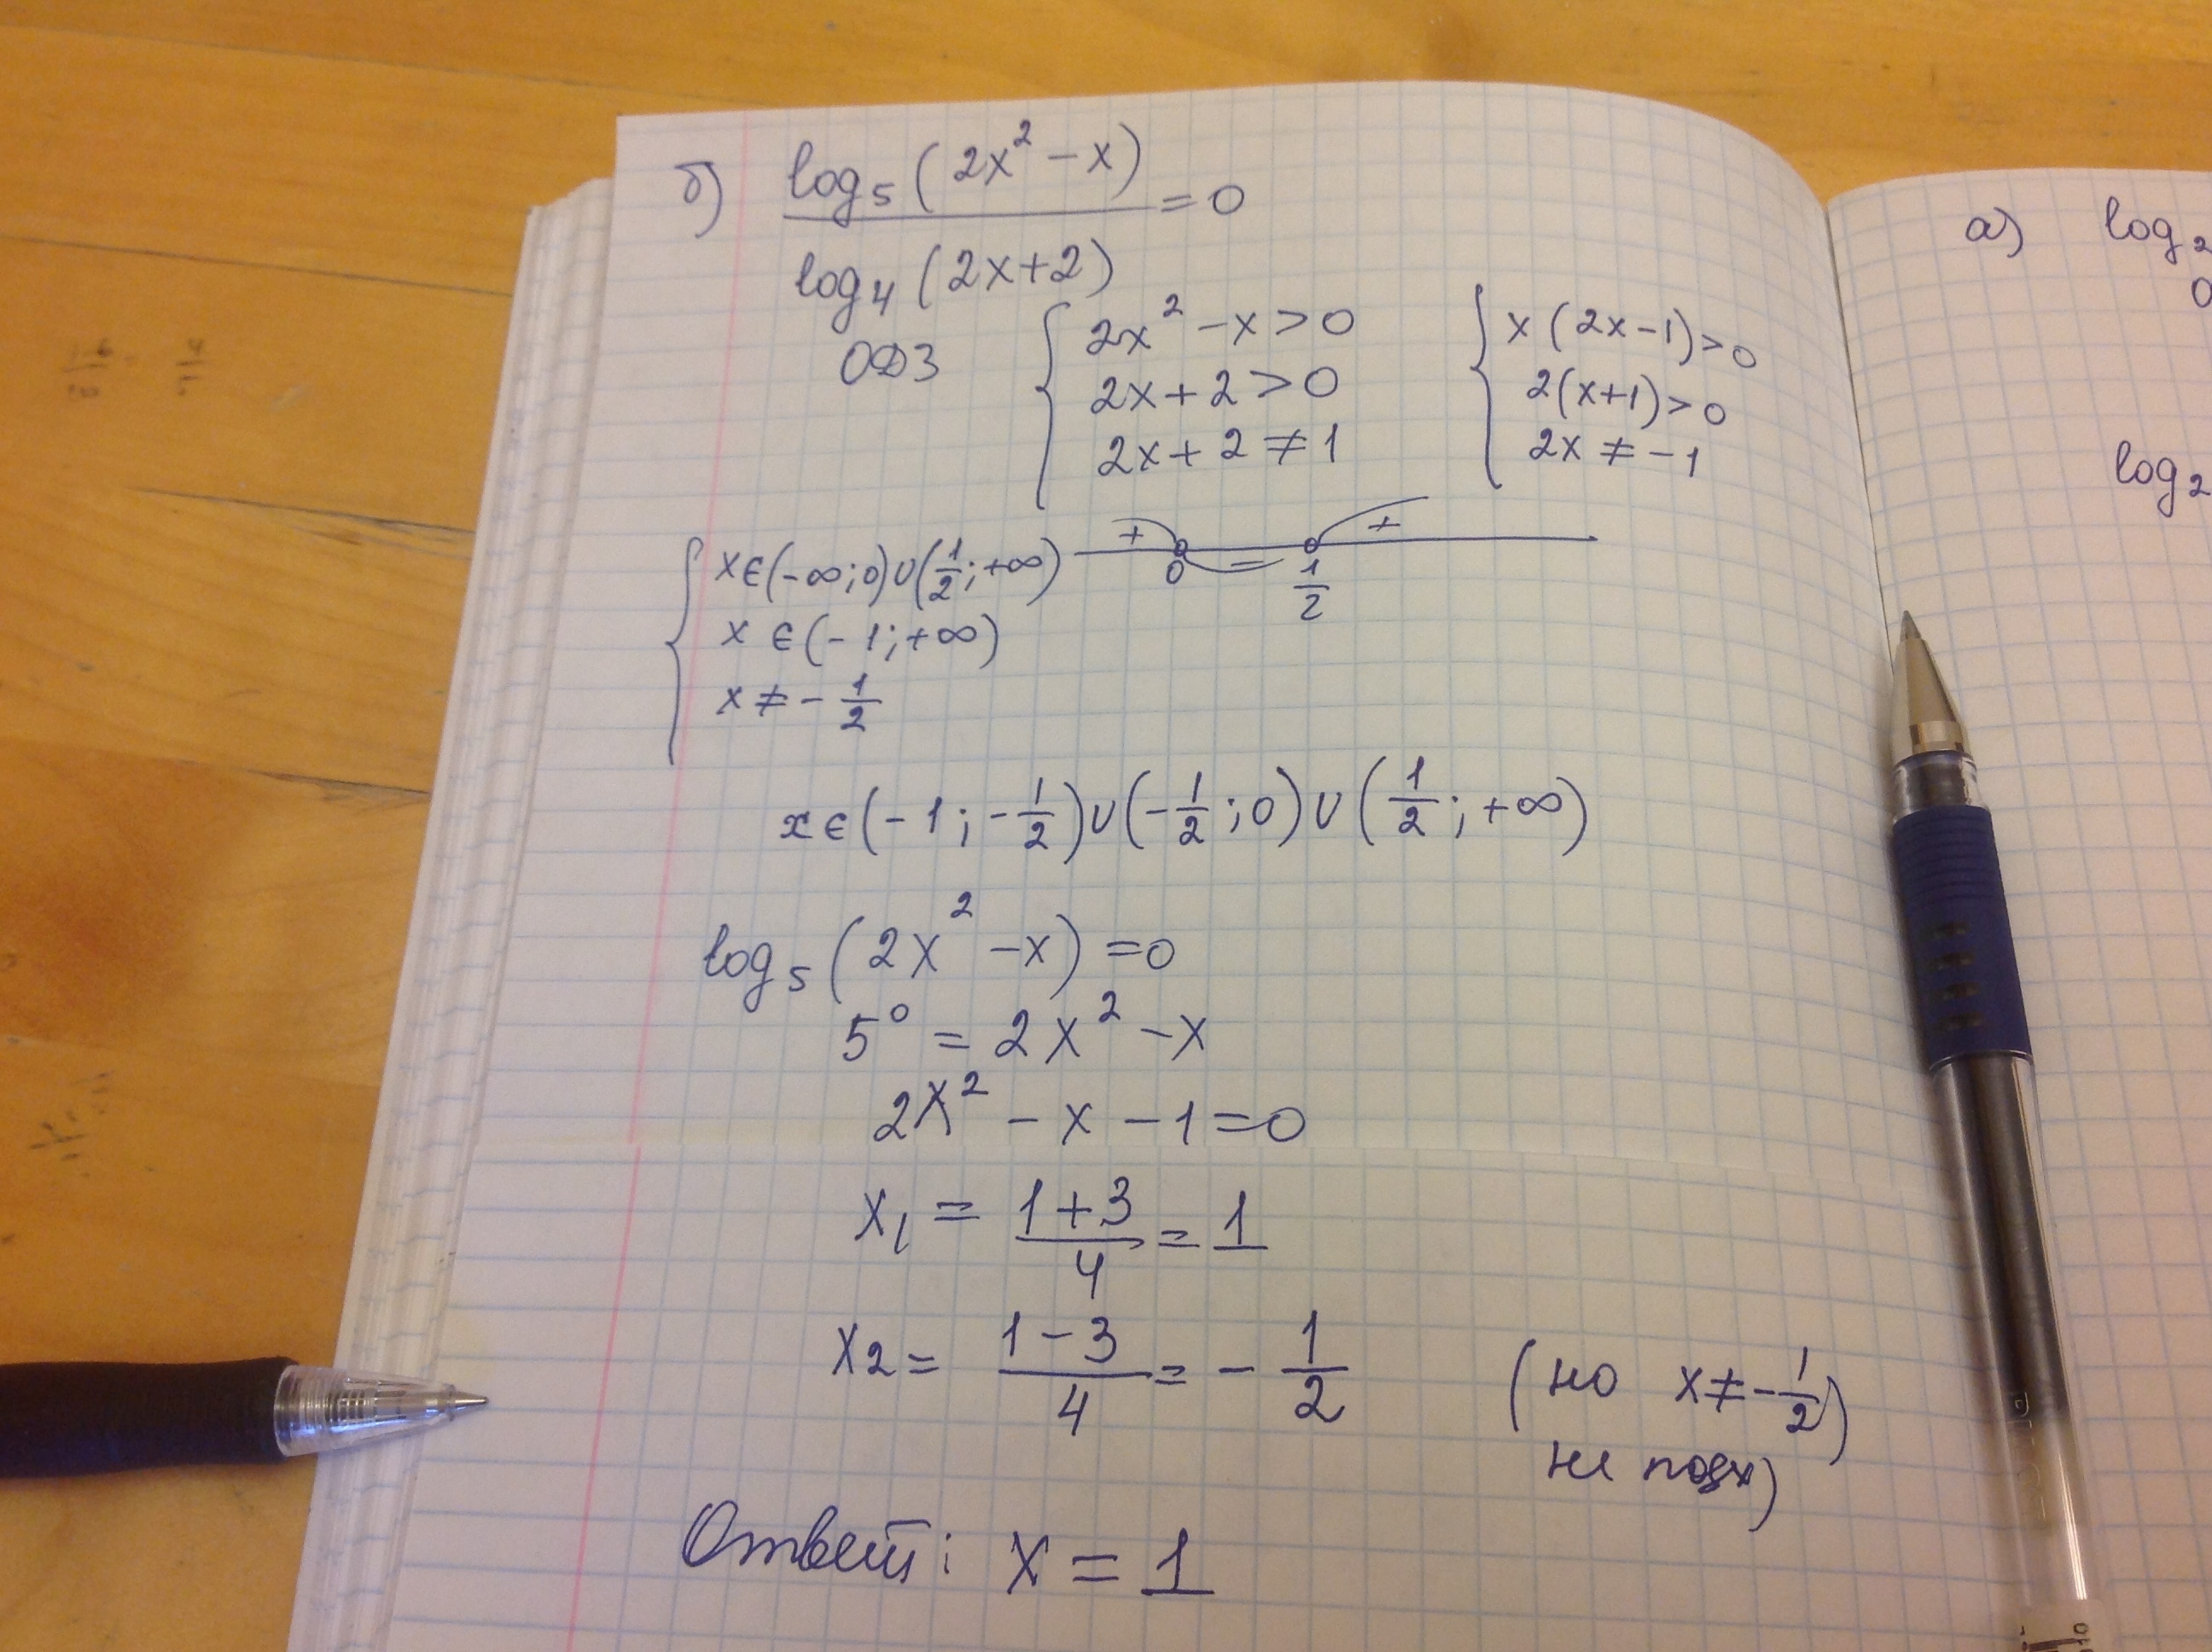 б) log₅(2x² − x) / log₄(2x+2) = 0
ОДЗ { 2x² − x > 0 { x(2x−1) > 0
2x + 2 > 0 2(x+1) > 0
2x + 2 ≠ 1 2x ≠ −1
+ − +
0 1/2
{ x ∈ (−∞; 0) ∪ (1/2; +∞)
x ∈ (−1; +∞)
x ≠ − 1/2
x ∈ (−1; −1/2) ∪ (−1/2; 0) ∪ (1/2; +∞)
log₅(2x² − x) = 0
5⁰ = 2x² − x
2x² − x − 1 = 0
x₁ = (1+3)/4 = 1
x₂ = (1−3)/4 = − 1/2 (но x ≠ −1/2)
не подх)
Ответ: x = 1
а) log₂
0
log₂